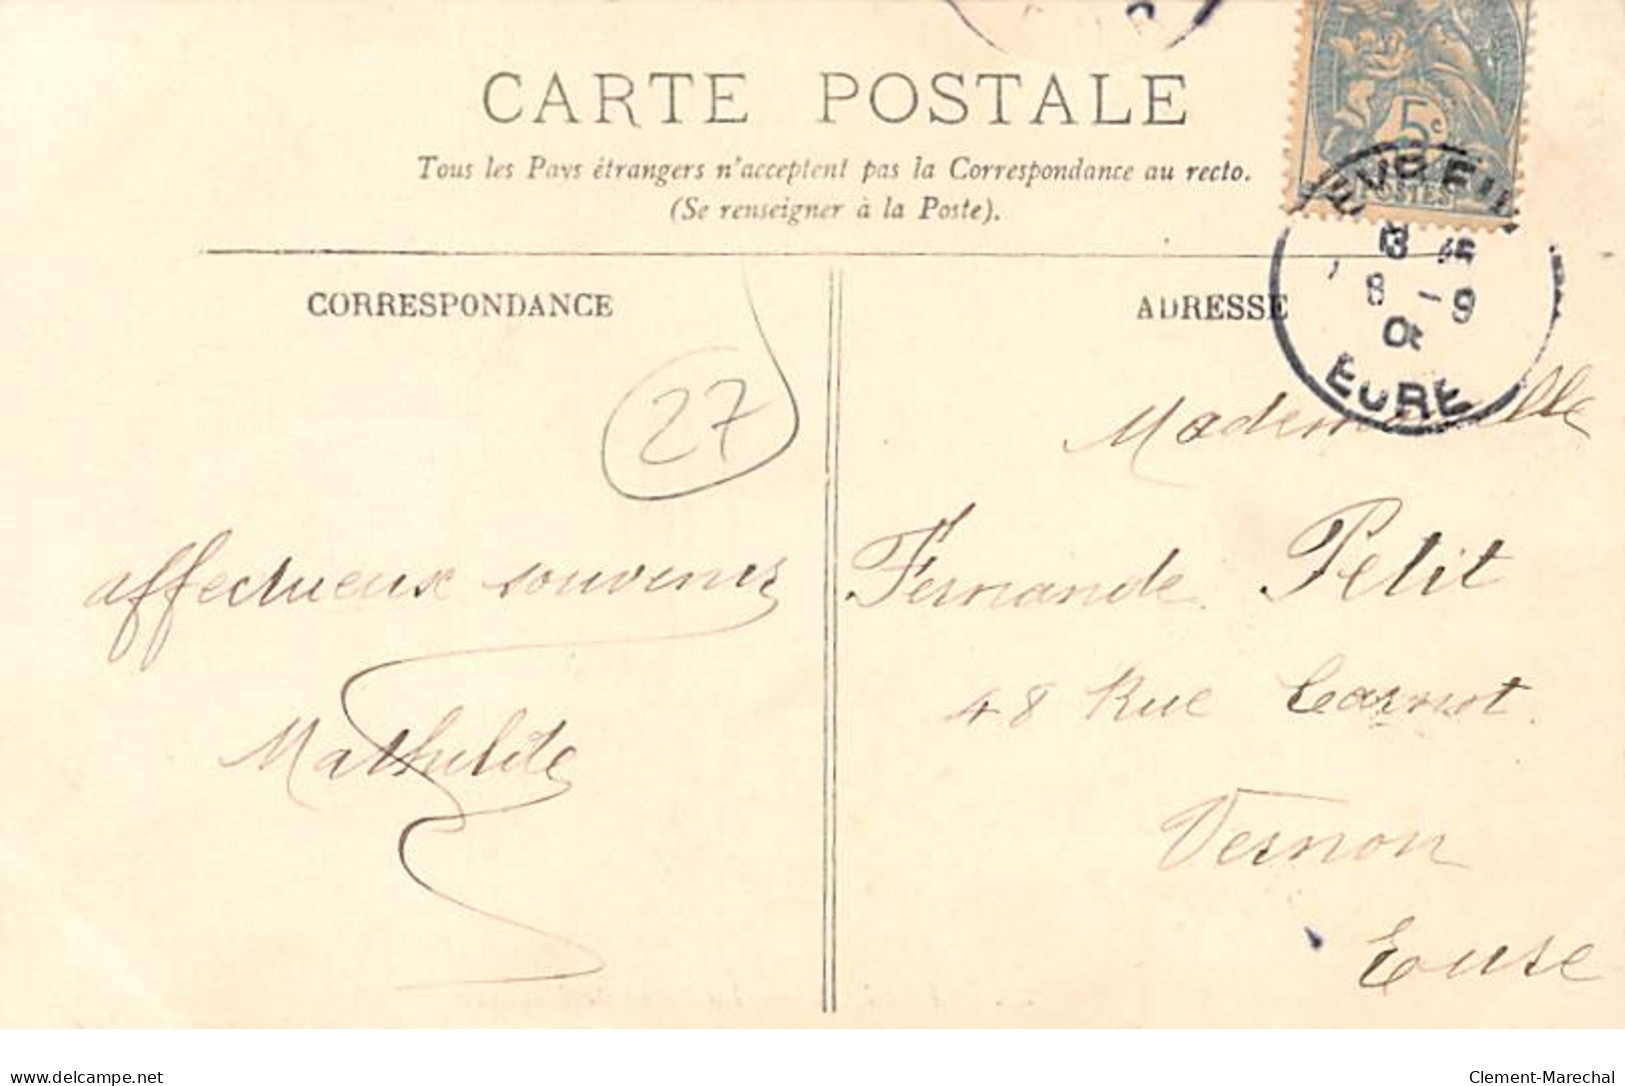 CARTE POSTALE
Tous les Pays étrangers n'acceptent pas la Correspondance au recto.
(Se renseigner à la Poste).
5c
POSTES
13
8 - 9
EURE
CORRESPONDANCE
ADRESSE
27
Mademoiselle
affectueux souvenirs
Fernande Petit
48 Rue Carnot
Mathilde
Vernon
Eure
delcampe.net
Clement-Marechal